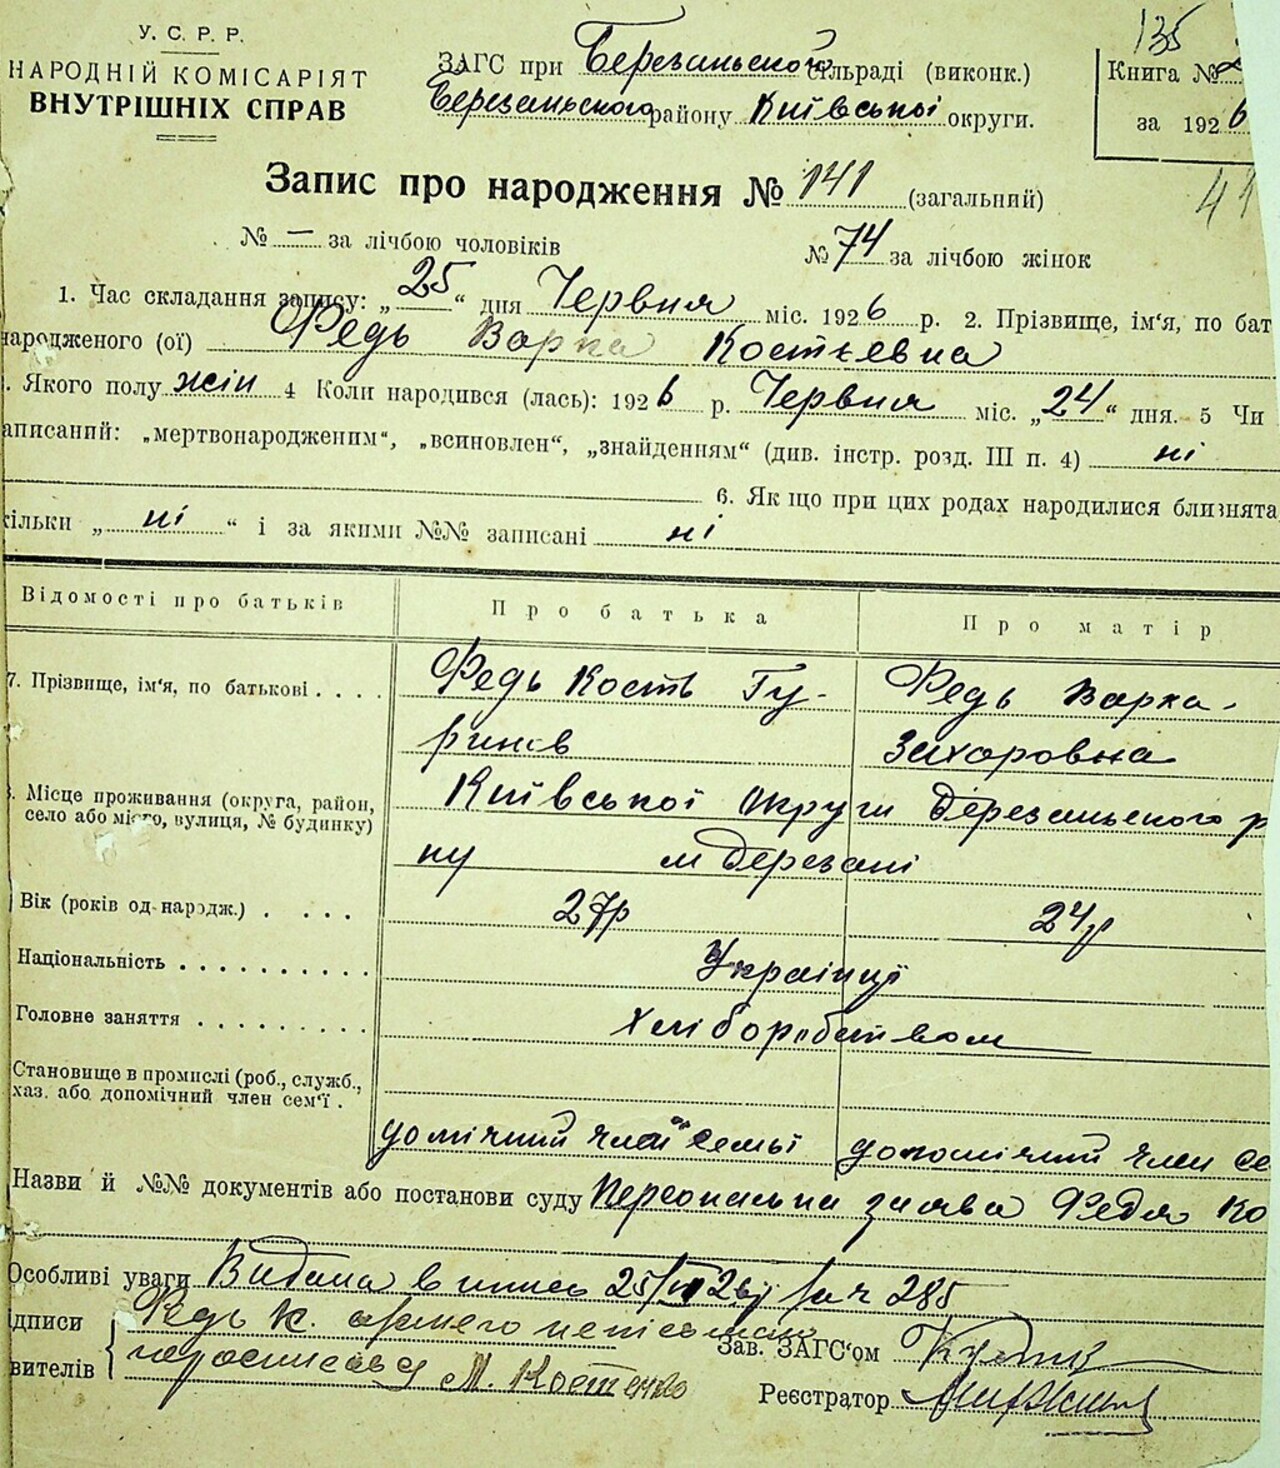 135
У. С. Р. Р.
НАРОДНІЙ КОМІСАРІЯТ
ВНУТРІШНІХ СПРАВ
ЗАГС при Березанської сільраді (виконк.)
Березанського району Київської округи.
Книга №
за 1926
41
Запис про народження № 141 (загальний)
№ — за лічбою чоловіків № 74 за лічбою жінок
1. Час складання запису: „25“ дня Червня міс. 1926 р. 2. Прізвище, ім'я, по бат
народженого (ої) Федь Варка Костьевна
. Якого полу жін 4 Коли народився (лась): 1926 р. Червня міс. „24“ дня. 5 Чи
аписаний: „мертвонародженим“, „всиновлен“, „знайденням“ (див. інстр. розд. III п. 4) ні
6. Як що при цих родах народилися близнята
кільки „ні“ і за якими №№ записані ні
Відомості про батьків Про батька Про матір
7. Прізвище, ім'я, по батькові . . . . Федь Кость Гу- Федь Варка
ринів Захоровна
. Місце проживання (округа, район, Київської округи Березанського р
село або місто, вулиця, № будинку)
ну м Березані
Вік (років од народж.) . . . . 27р 24р
Національність . . . . . . . . . . Українці
Головне заняття . . . . . . . . . Хліборобством
Становище в промислі (роб., служб.,
хаз. або допомічний член сем'ї .
домічний член семьї допомічний член се
Назви й №№ документів або постанови суду Персональна заява Федя Ко
Особливі уваги Видана випись 25/VI 26р за ч 285
ідписи Федь К. а за него неписьмен
вителів росписався М. Костенко
Зав. ЗАГС'ом
Реєстратор